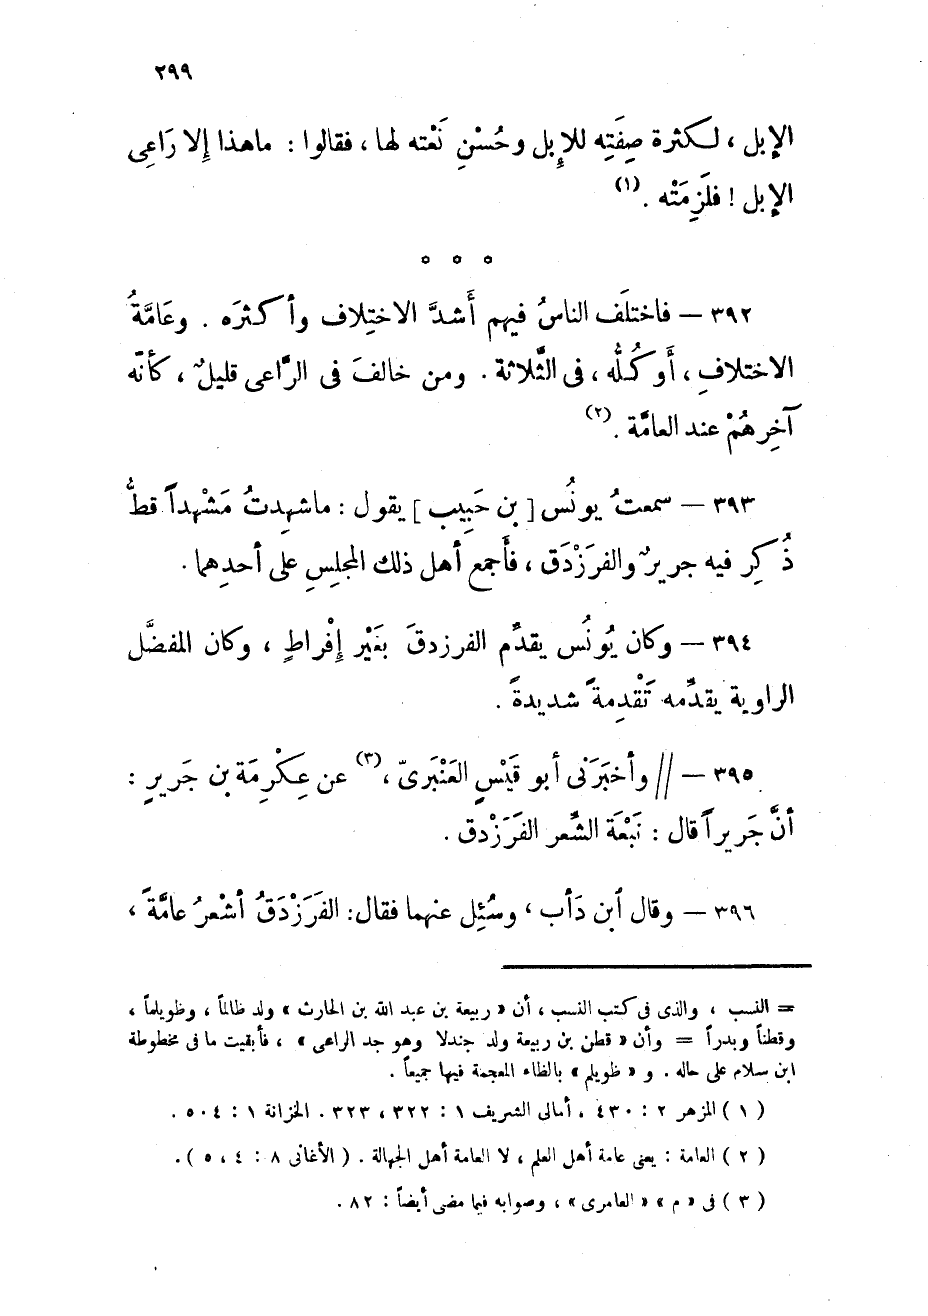 ٢٩٩
الإبل ، لكثرة صِفَتِه للإِبل وحُسْنِ نَعْته لها ، فقالوا : ماهذا إلا رَاعِى
الإبل ! فلَزِمَتْه . (١)
* * *
٣٩٢ — فاختلَف الناسُ فيهم أَشدَّ الاختِلاف وأكثرَه . وعَامَّةُ
الاختلافِ ، أَو كُلُّه ، فى الثَّلاثة . ومن خالفَ فى الرَّاعى قليلٌ ، كأنّه
آخِرهُمْ عند العامَّة . (٢)
٣٩٣ — سمعتُ يونُس [ بن حَبِيبٍ ] يقول : ماشهِدتُ مَشْهداً قطُّ
ذُكِر فيه جريرٌ والفرَزْدَق ، فأَجمع أهل ذلك المجلِسِ على أحدِهما .
٣٩٤ — وكان يُونُس يقدِّم الفرزدقَ بغَيْر إِفْراطٍ ، وكان المفضَّل
الراوية يقدِّمه تَقْدِمةً شديدةً .
٣٩٥ — // وأخبَرَنى أبو قَيْسٍ العَنْبَرىّ ، (٣) عن عِكْرِمَة بن جَريرٍ :
أنَّ جَريراً قال : نَبْعَة الشِّعر الفَرَزْدق .
٣٩٦ — وقال ٱبن دَأب ، وسُئِل عنهما فقال : الفَرَزْدَقُ أشْعرُ عامَّةً ،
= النسب ، والذى فى كتب النسب ، أن « ربيعة بن عبد الله بن الحارث » ولد ظالماً ، وظويلماً ،
وقطناً وبدراً = وأن « قطن بن ربيعة ولد جندلا وهو جد الراعى » ، فأبقيت ما فى مخطوطة
ابن سلام على حاله . و « ظويلم » بالظاء المعجمة فيها جميعاً .
( ١ ) المزهر ٢ : ٤٣٠ ، أمالى الشريف ١ : ٣٢٢ ، ٣٢٣ . الخزانة ١ : ٥٠٤ .
( ٢ ) العامة : يعنى عامة أهل العلم ، لا العامة أهل الجهالة . ( الأغانى ٨ : ٤ ، ٥ ) .
( ٣ ) فى « م » « العامرى » ، وصوابه فيما مضى أيضاً : ٨٢ .